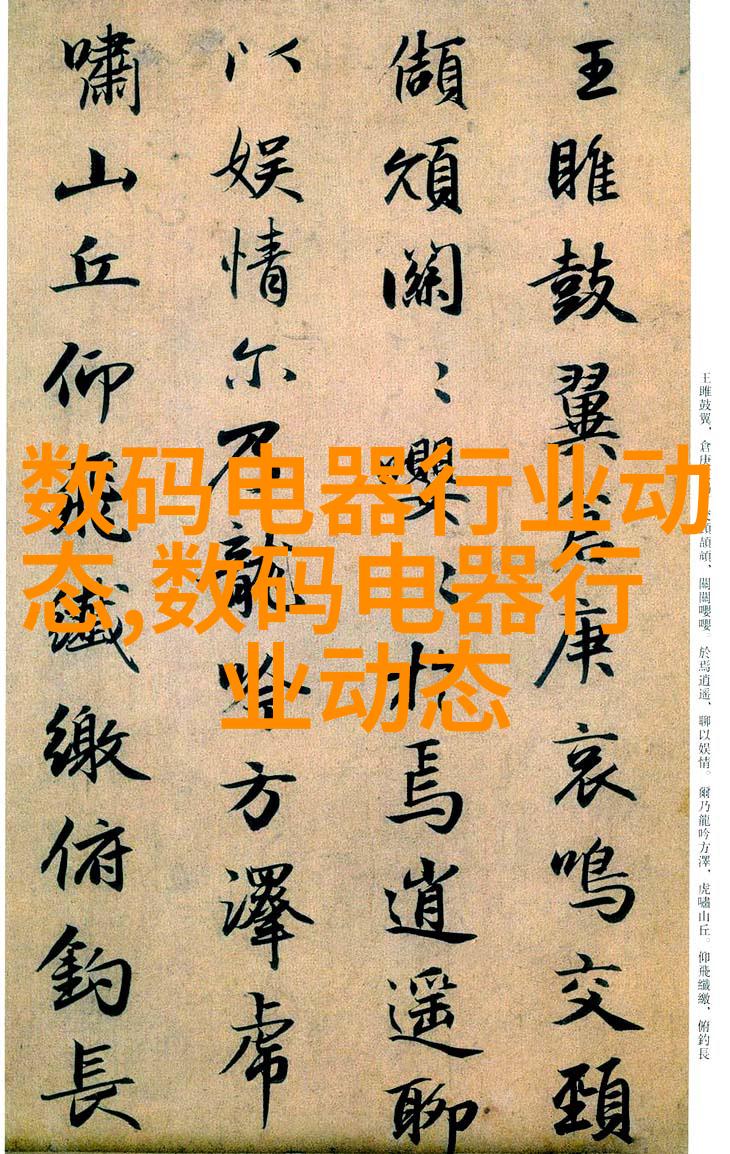 王雎鼓翼、倉庚頡頏、關關嚶嚶。於焉逍遥、聊以娱情。爾乃龍吟方澤、虎嘯山丘。仰飛纖繳、俯釣長
王雎鼓翼倉庚哀鳴交頸
頡頏關〻嚶〻於焉逍遥聊
以娱情尔乃龍吟方澤虎
嘯山丘仰飛纖繳俯釣長
数码电器行业动
态,数码电器行
业动态